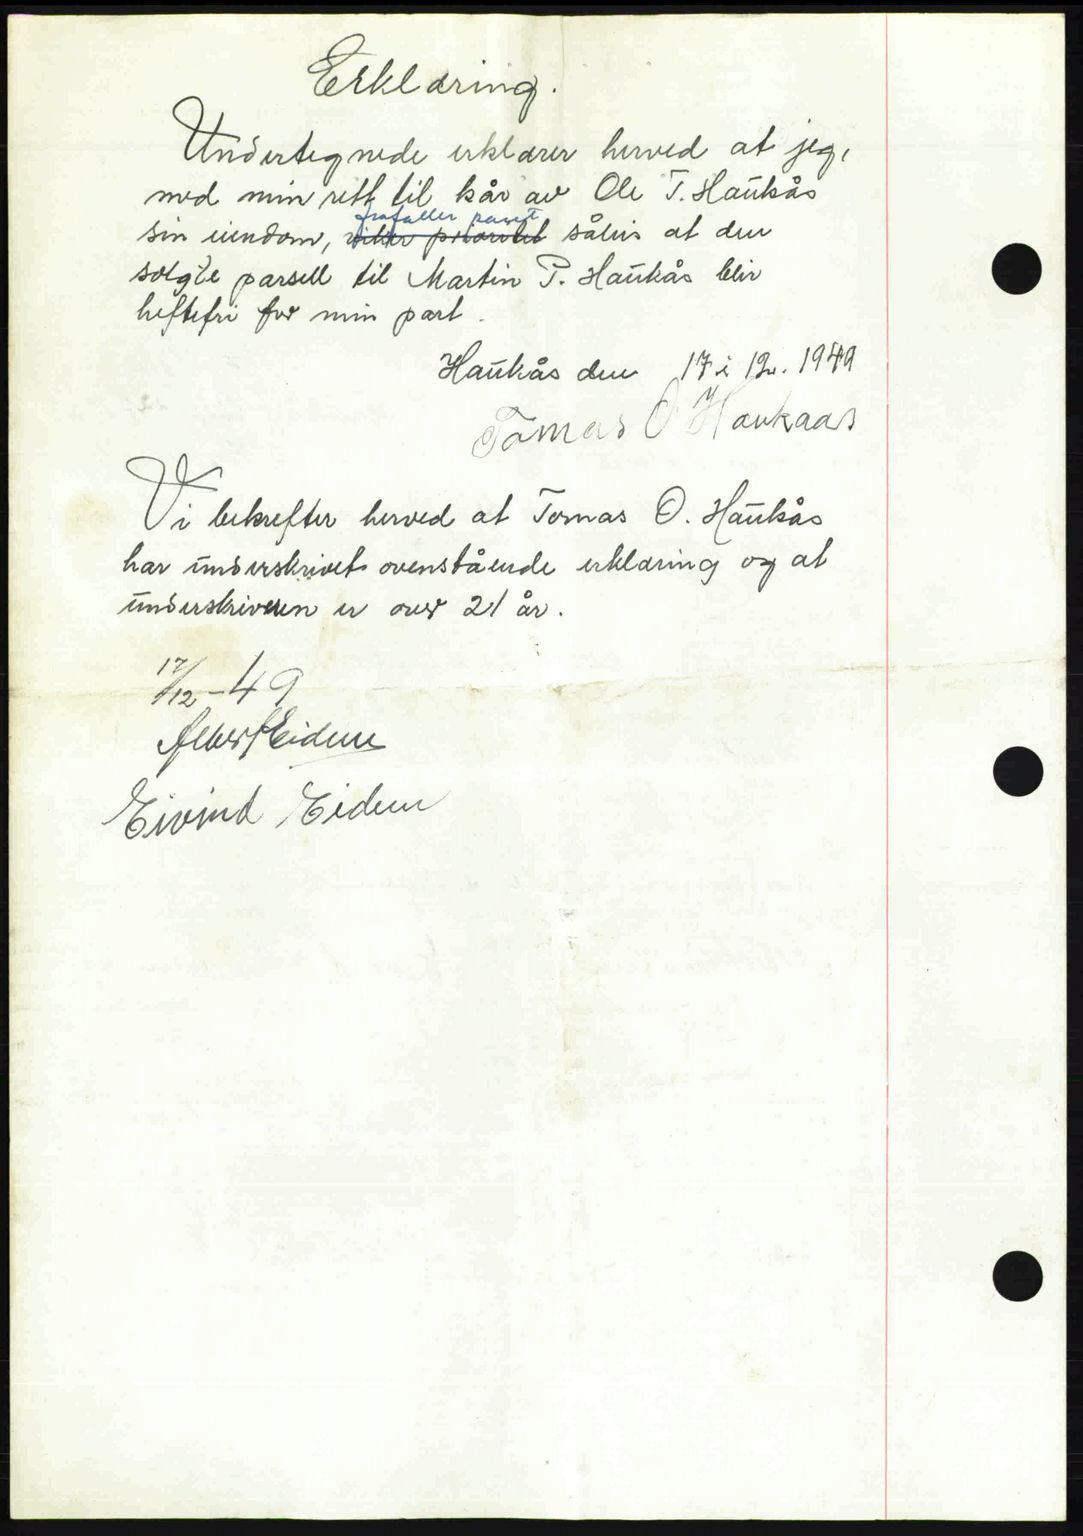 Erklæring.
Undertegnede erklærer herved at jeg,
med min rett til kår av Ole T. Haukås
frafaller panet
sin eiendom, viker prioritet såleis at den
solgte parsell til Martin P. Haukås blir
heftefri for min part.
Haukås den 17 i 12. 1949
Tomas O Haukaas
Vi bekrefter herved at Tomas O. Haukås
har underskrivet ovenstående erklæring og at
underskriveren er over 21 år.
17/12-49
Albert Eidem
Eivind Eidem